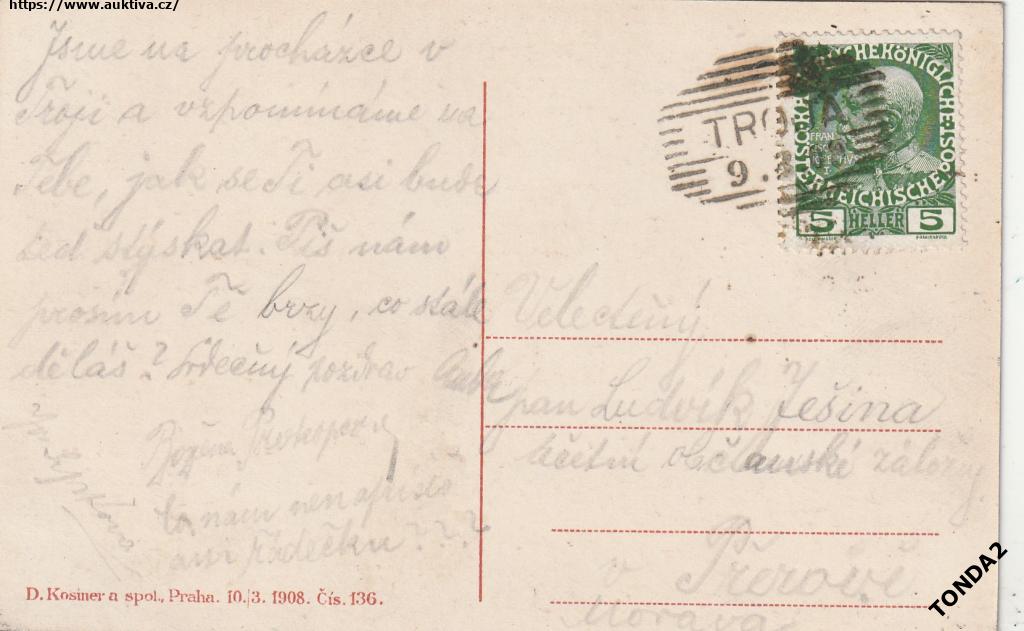 https://www.auktiva.cz/
Jsme na procházce v
Troji a vzpomínáme na
Tebe, jak se Ti asi bude
teď stýskat. Piš nám
prosím Tě brzy, co stále
děláš? Srdečný pozdrav
Božena
to nám nenapíšeš
ani řádečku???
TROJA
9.
5 HELLER 5
Velectěný
pan Ludvík Ješina
účetní občanské záložny
v Přerově
Morava
D. Kosiner a spol., Praha. 10./3. 1908. Čís. 136.
TONDA2